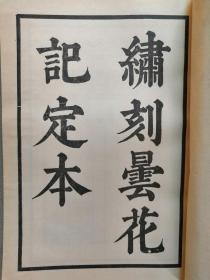 繡刻曇花
記定本